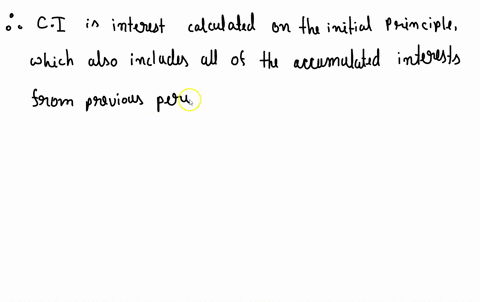 ∴ C.I is interest calculated on the initial principle,
which also includes all of the accumulated interests
from previous peru